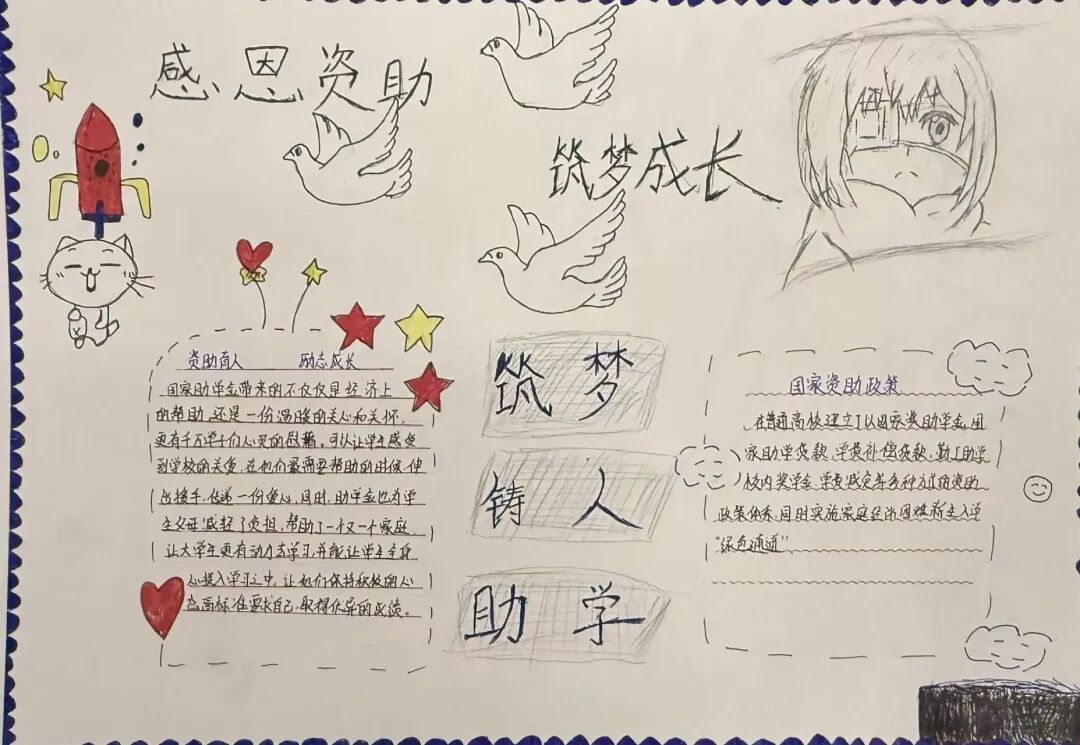 感恩资助
筑梦成长
资助育人 励志成长
国家助学金带来的不仅仅是经济上
的帮助,还是一份温暖的关心和关怀,
更有千万学子们心灵的慰藉。可以让学生感受
到学校的关爱,在他们最需要帮助的时候,伸
出援手,传递一份爱心,同时,助学金也为学
生父母减轻了负担,帮助了一个又一个家庭
让大学生更有动力去学习,并能让学生全身
心投入学习之中,让他们保持积极的心
态高标准要求自己,取得优异的成绩。
筑梦
铸人
助学
国家资助政策
在普通高校建立了以国家奖助学金,国
家助学贷款,学费补偿贷款,勤工助学
校内奖学金,学费减免等多种方式的资助
政策体系,同时实施家庭经济困难新生入学
“绿色通道”